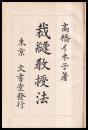 高橋イネ子著
裁縫教授法
東京 文書堂發行